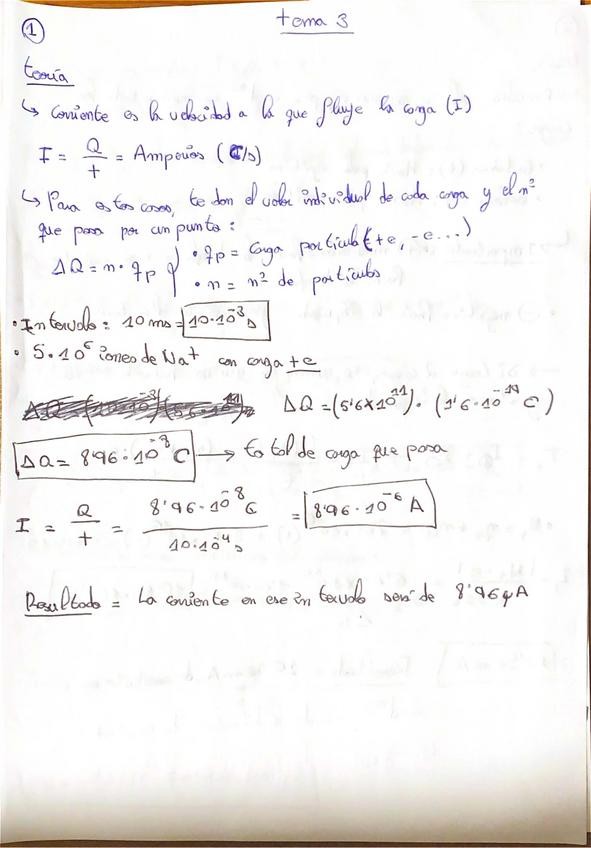 1
tema 3
teoría
↳ Corriente es la velocidad a la que fluye la carga (I)
I = Q/t = Amperios (C/s)
↳ Para estos casos, te dan el valor individual de cada carga y el nº
que pasa por un punto:
ΔQ = n · qp
• qp = carga partícula (+e, -e...)
• n = nº de partículas
• Intervalo: 10 ms = 10·10⁻³ s
• 5·10⁶ iones de Na⁺ con carga +e
ΔQ = (5'6×10¹¹) · (1'6·10⁻¹⁹ C)
ΔQ = 8'96·10⁻⁸ C → total de carga que pasa
I = Q/t = 8'96·10⁻⁸ C / 10·10⁻⁴ s = 8'96·10⁻⁶ A
Resultado = La corriente en ese intervalo será de 8'96 μA